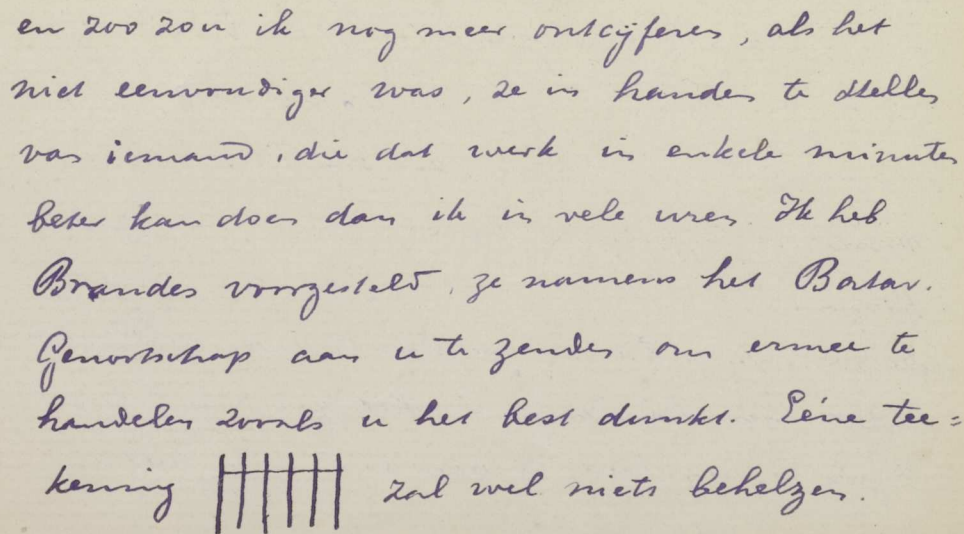 en zoo zou ik nog meer ontcijferen, als het
niet eenvoudiger was, ze in handen te stellen
van iemand, die dat werk in enkele minuten
beter kan doen dan ik in vele uren. Ik heb
Brandes voorgesteld, ze namens het Batav.
Genootschap aan u te zenden om ermee te
handelen zooals u het best dunkt. Eéne tee=
kening zal wel niets behelzen.